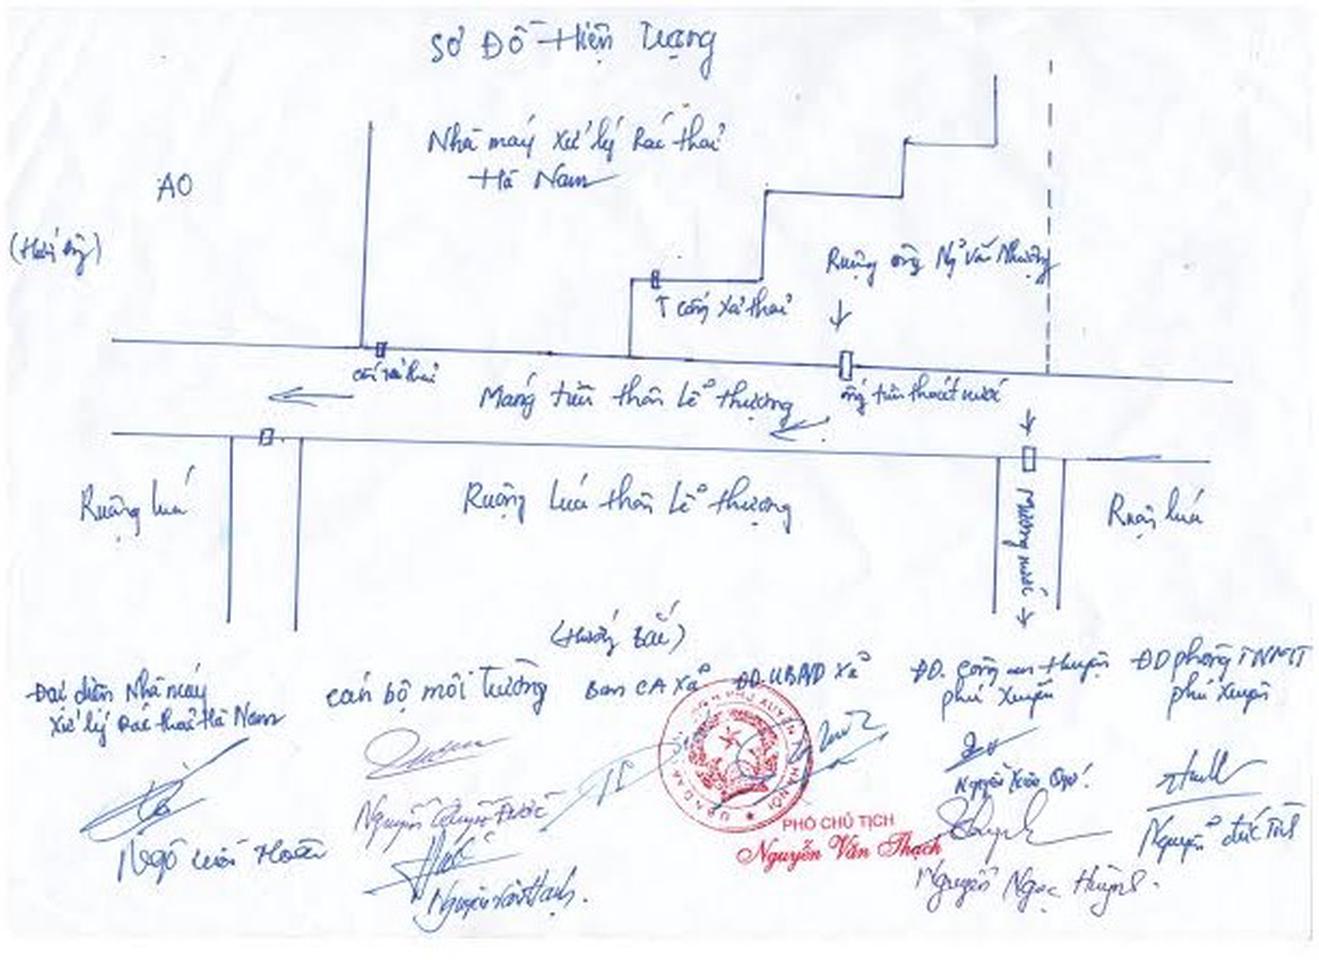 Sơ Đồ Hiện Trạng
Nhà máy xử lý Rác thải
Hà Nam
AO
(Hướng
Ruộng ông Ng. Văn Nhượng
↑ cống xả thải
cống xả thải
Máng tiêu thôn Lễ thượng
ống tiêu thoát nước
Ruộng lúa
Ruộng Lúa thôn Lễ thượng
Mương nước
Ruộng lúa
(Hướng Bắc)
Đại diện Nhà máy
xử lý Rác thải Hà Nam
cán bộ môi Trường
Ban CA Xã
ĐD. UBND Xã
ĐD. công an Huyện
phú Xuyên
ĐD phòng TNMT
phú Xuyên
PHÓ CHỦ TỊCH
Nguyễn Văn Thạch
Ngô
Nguyễn Được
Nguyễn Văn Hạnh.
Nguyễn
Nguyễn Ngọc Huỳnh.
Nguyễn đức
PHÚ XUYÊN
HÀ NỘI